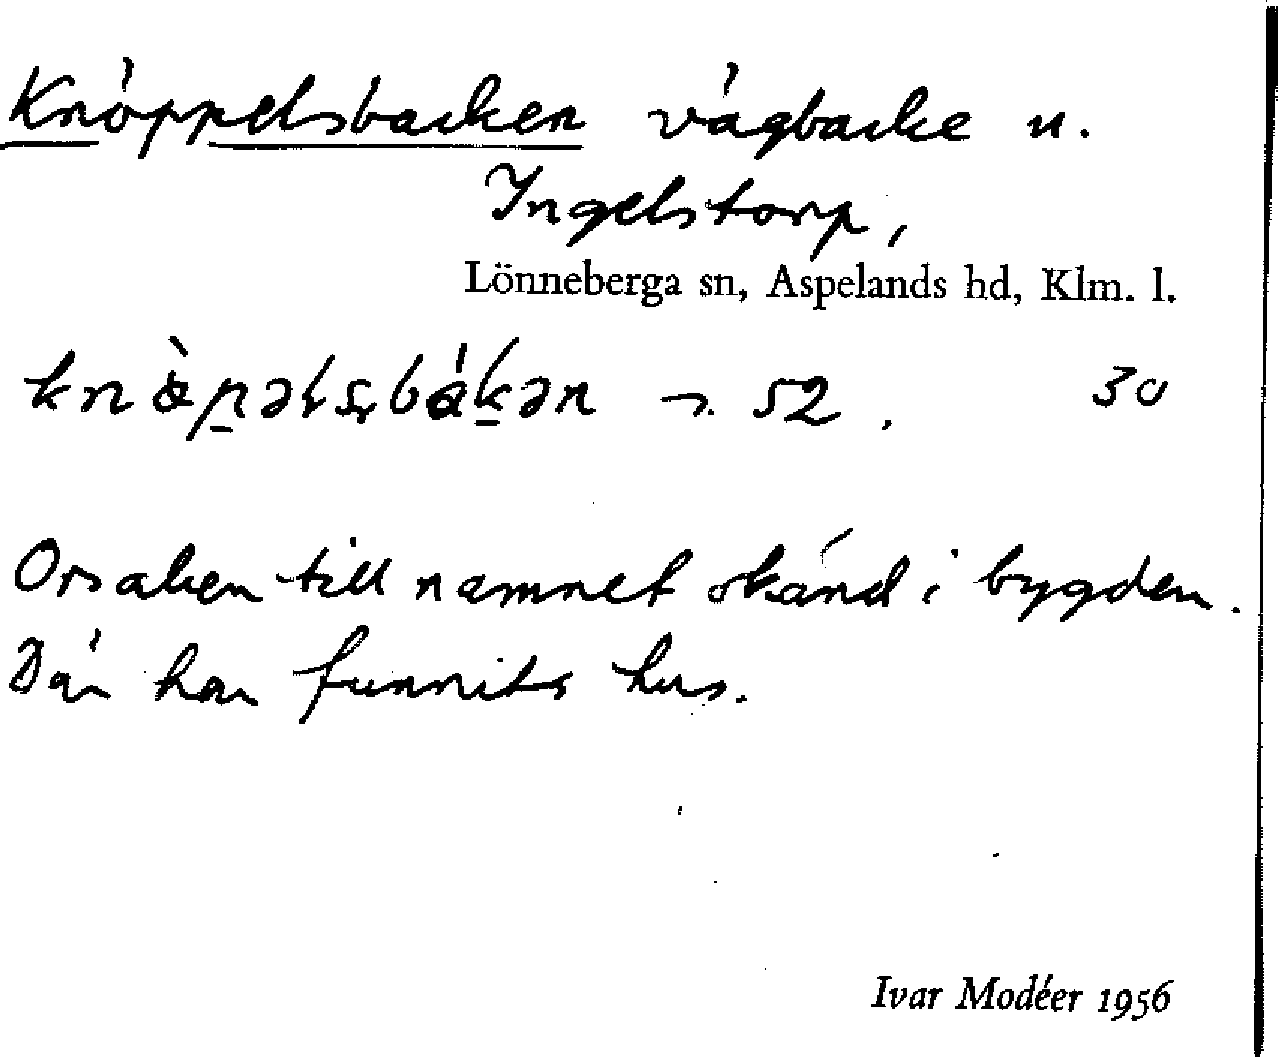 Knöppelsbacken vägbacke u.
Ingelstorp,
Lönneberga sn, Aspelands hd, Klm. l.
52. 30
Orsaken till namnet okänd i bygden.
Där har funnits hus.
Ivar Modéer 1956